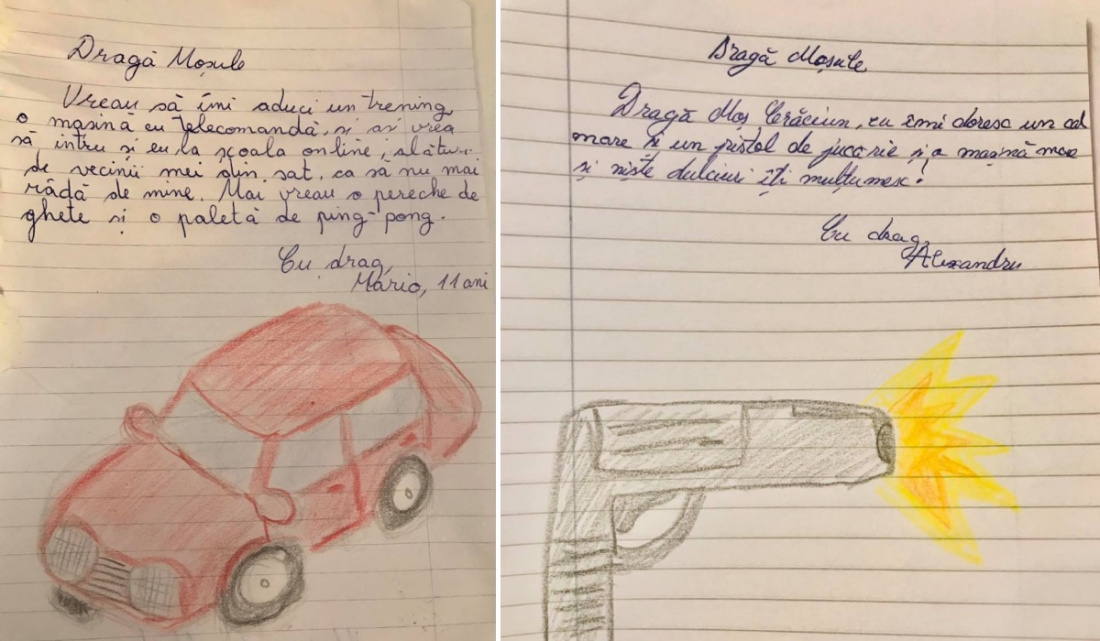 Dragă Moșule
Vreau să îmi aduci un trening,
o mașină cu telecomandă, și aș vrea
să intru și eu la școala online, alături
de vecinii mei din sat, ca să nu mai
râdă de mine. Mai vreau o pereche de
ghete și o paletă de ping-pong.
Cu drag,
Mario, 11 ani
Dragă Moșule
Dragă Moș Crăciun, eu îmi doresc un cal
mare și un pistol de jucarie și o mașină mare
și niște dulciuri îți mulțumesc.
Cu drag,
Alexandru